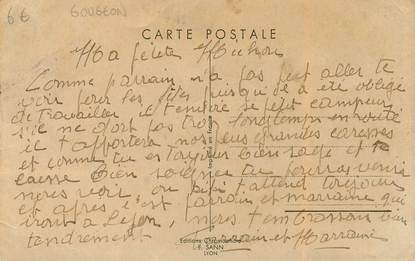 6€ GOUGEON
CARTE POSTALE
Ma petite Michou
Comme parrain n'a pas peut aller te
voir pour les fêtes puisqu'il a été obligé
de travailler il t'envoie se petit campeur
s'il ne dort pas trop longtemps en route
il t'apportera nos plus grandes caresses
et comme tu es toujours bien sage et te
laisse bien soigner tu pourras venir
nous voir ou pipi t'attend toujours
et après c'est parrain et marraine qui
iront à Lyon, nous t'embrassons bien
tendrement Parrain et Marraine
Editions
J. SANN
LYON